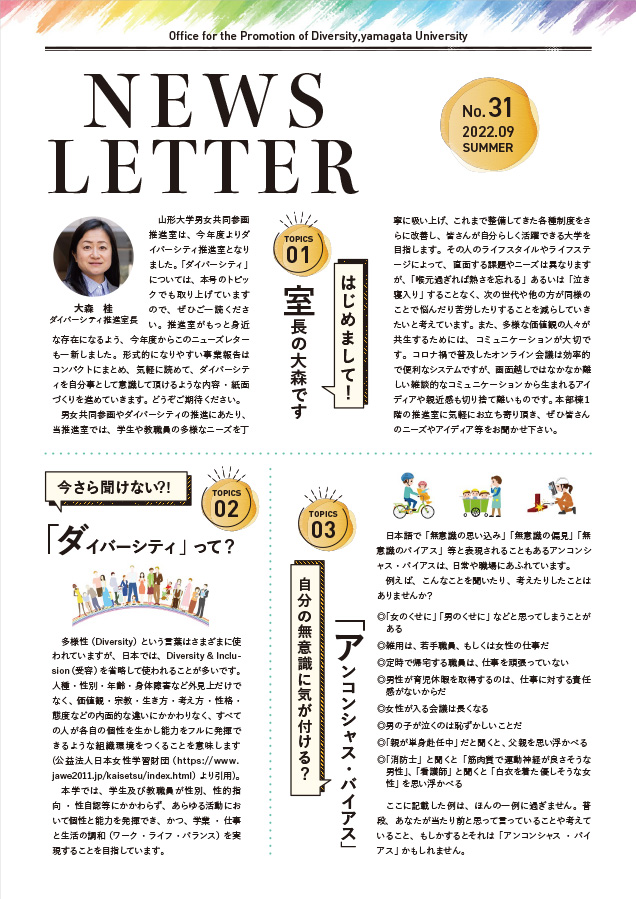 Office for the Promotion of Diversity,yamagata University
NEWS
LETTER
No.31
2022.09
SUMMER
TOPICS
01
はじめまして!
室長の大森です
大森 桂
ダイバーシティ推進室長
山形大学男女共同参画
推進室は、今年度よりダ
イバーシティ推進室となり
ました。「ダイバーシティ」
については、本号のトピッ
クでも取り上げています
ので、ぜひご一読くださ
い。推進室がもっと身近
な存在になるよう、今年度からこのニューズレター
も一新しました。形式的になりやすい事業報告は
コンパクトにまとめ、気軽に読めて、ダイバーシテ
ィを自分事として意識して頂けるような内容・紙面
づくりを進めていきます。どうぞご期待ください。
男女共同参画やダイバーシティの推進にあたり、
当推進室では、学生や教職員の多様なニーズを丁
寧に吸い上げ、これまで整備してきた各種制度をさ
らに改善し、皆さんが自分らしく活躍できる大学を
目指します。その人のライフスタイルやライフステ
ージによって、直面する課題やニーズは異なります
が、「喉元過ぎれば熱さを忘れる」あるいは「泣き
寝入り」することなく、次の世代や他の方が同様の
ことで悩んだり苦労したりすることを減らしていき
たいと考えています。また、多様な価値観の人々が
共生するためには、コミュニケーションが大切で
す。コロナ禍で普及したオンライン会議は効率的
で便利なシステムですが、画面越しではなかなか難
しい雑談的なコミュニケーションから生まれるアイ
ディアや親近感も切り捨て難いものです。本部棟1
階の推進室に気軽にお立ち寄り頂き、ぜひ皆さん
のニーズやアイディア等をお聞かせ下さい。
今さら聞けない?!
TOPICS
02
「ダイバーシティ」って?
多様性(Diversity)という言葉はさまざまに使
われていますが、日本では、Diversity & Inclu-
sion(受容)を省略して使われることが多いです。
人種・性別・年齢・身体障害など外見上だけで
なく、価値観・宗教・生き方・考え方・性格・
態度などの内面的な違いにかかわりなく、すべて
の人が各自の個性を生かし能力をフルに発揮で
きるような組織環境をつくることを意味します
(公益法人日本女性学習財団(https://www.
jawe2011.jp/kaisetsu/index.html)より引用)。
本学では、学生及び教職員が性別、性的指
向・性自認等にかかわらず、あらゆる活動にお
いて個性と能力を発揮でき、かつ、学業・仕事
と生活の調和(ワーク・ライフ・バランス)を実
現することを目指しています。
TOPICS
03
自分の無意識に気が付ける?
「アンコンシャス・バイアス」
日本語で「無意識の思い込み」「無意識の偏見」「無
意識のバイアス」等と表現されることもあるアンコンシ
ャス・バイアスは、日常や職場にあふれています。
例えば、こんなことを聞いたり、考えたりしたことは
ありませんか?
◎「女のくせに」「男のくせに」などと思ってしまうことが
ある
◎雑用は、若手職員、もしくは女性の仕事だ
◎定時で帰宅する職員は、仕事を頑張っていない
◎男性が育児休暇を取得するのは、仕事に対する責任
感がないからだ
◎女性が入る会議は長くなる
◎男の子が泣くのは恥ずかしいことだ
◎「親が単身赴任中」だと聞くと、父親を思い浮かべる
◎「消防士」と聞くと「筋肉質で運動神経が良さそうな
男性」、「看護師」と聞くと「白衣を着た優しそうな女
性」を思い浮かべる
ここに記載した例は、ほんの一例に過ぎません。普
段、あなたが当たり前と思って言っていることや考えて
いること、もしかするとそれは「アンコンシャス・バイ
アス」かもしれません。